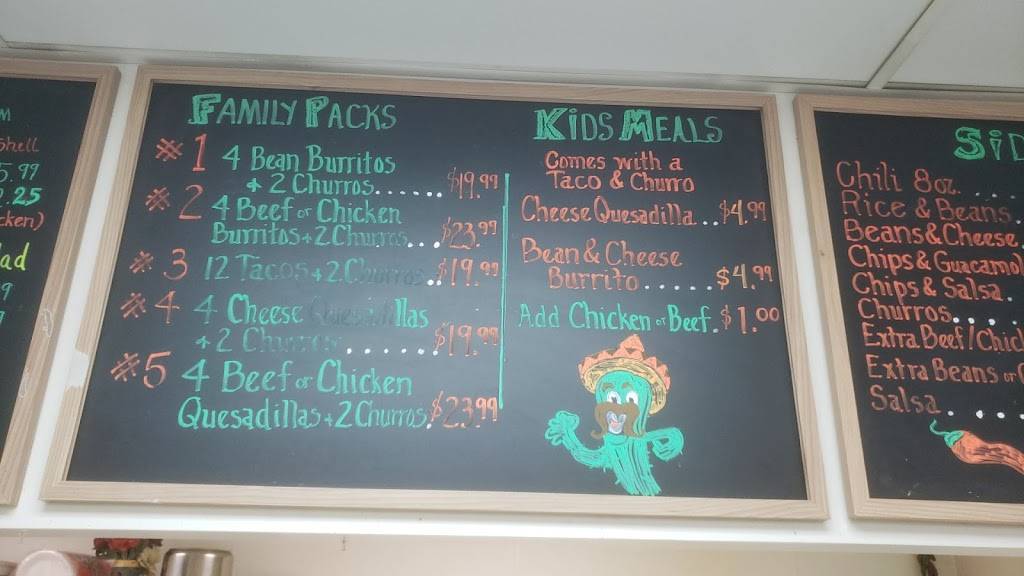 M
Shell
5.99
.25
cken)
ad
9
FAMILY PACKS
#1 4 Bean Burritos
+ 2 Churros...... $19.99
#2 4 Beef or Chicken
Burritos + 2 Churros... $23.99
#3 12 Tacos + 2 Churros.. $19.99
#4 4 Cheese Quesadillas
+ 2 Churros....... $19.99
#5 4 Beef or Chicken
Quesadillas + 2 Churros. $23.99
KIDS MEALS
Comes with a
Taco & Churro
Cheese Quesadilla...$4.99
Bean & Cheese
Burrito......$4.99
Add Chicken or Beef.$1.00
SiD
Chili 8oz...
Rice & Beans.
Beans & Cheese.
Chips & Guacamol
Chips & Salsa.
Churros....
Extra Beef/Chic
Extra Beans or
Salsa....